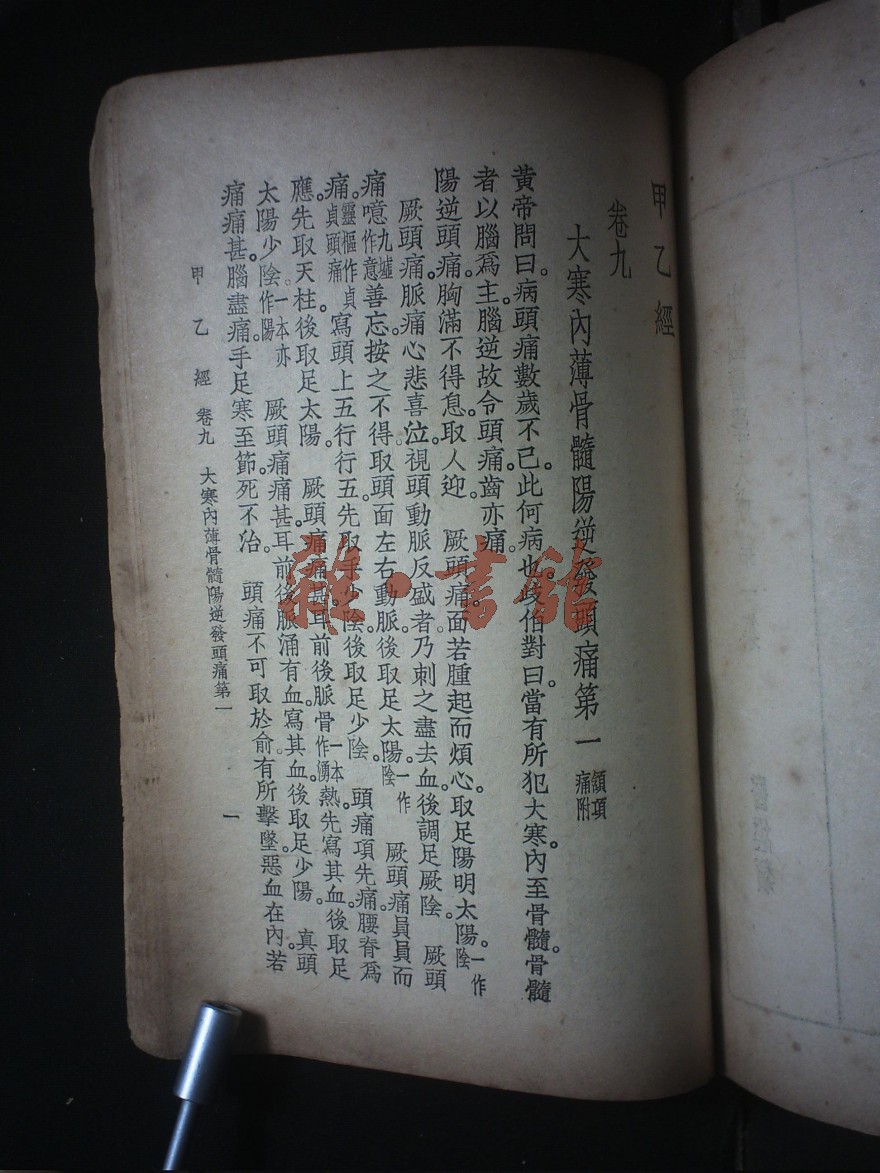 甲乙經
卷九
大寒內薄骨髓陽逆發頭痛第一 頷項痛附
黃帝問曰。病頭痛數歲不已。此何病也。岐伯對曰。當有所犯大寒。內至骨髓。骨髓
者以腦爲主。腦逆故令頭痛。齒亦痛。
陽逆頭痛。胸滿不得息。取人迎。 厥頭痛。面若腫起而煩心。取足陽明太陽。一作陰
厥頭痛。脈痛。心悲喜泣。視頭動脈反盛者。乃刺之盡去血。後調足厥陰。 厥頭
痛。噫九墟作意善忘。按之不得。取頭面左右動脈。後取足太陽。一作陰 厥頭痛員員而
痛。靈樞作貞貞頭痛寫頭上五行行五。先取手少陰。後取足少陰。 頭痛項先痛。腰脊爲
應。先取天柱。後取足太陽。 厥頭痛。痛甚。耳前後脈骨一本作湧熱。先寫其血。後取足
太陽少陰。一本亦作陽 厥頭痛。痛甚。耳前後脈涌有血。寫其血。後取足少陽。 真頭
痛。痛甚。腦盡痛。手足寒至節。死不治。 頭痛不可取於俞。有所擊墜。惡血在內。若
甲乙經 卷九 大寒內薄骨髓陽逆發頭痛第一 一
雜·書館